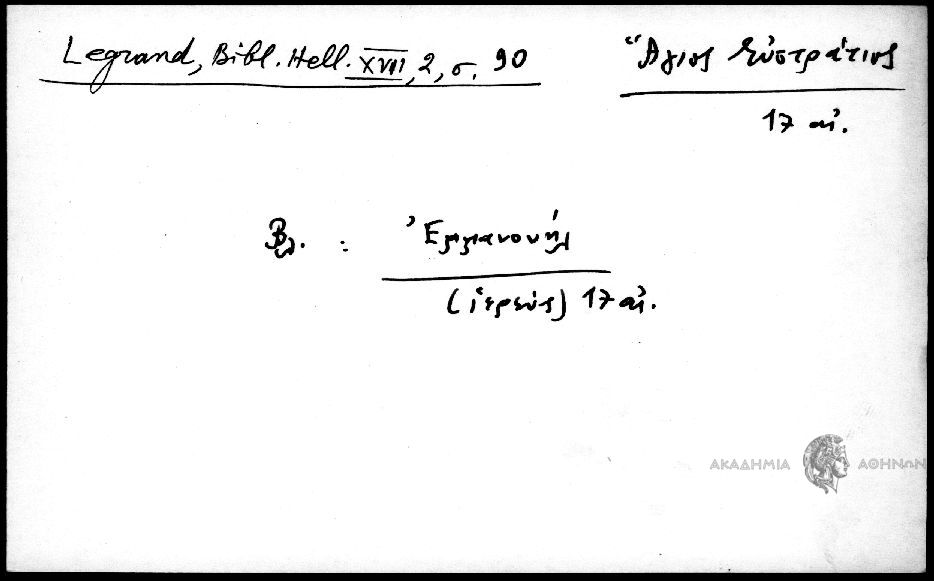 Legrand, Bibl. Hell. XVII, 2, σ. 90
Ἅγιος Εὐστράτιος
17 αἰ.
Βλ. : Ἐμμανουήλ
(ἱερεύς) 17 αἰ.
ΑΚΑΔΗΜΙΑ ΑΘΗΝΩΝ